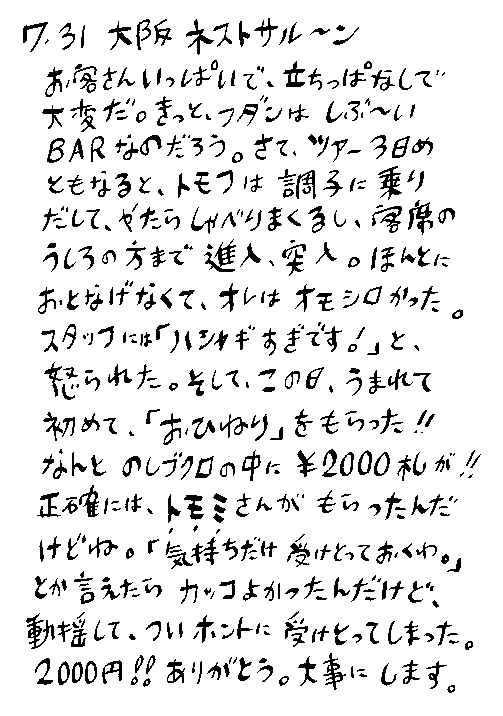 7.31 大阪 ネストサル〜ン
お客さんいっぱいで、立ちっぱなしで
大変だ。きっと、フダンは しぶ〜い
BARなのだろう。さて、ツアー3日め
ともなると、トモフは 調子に乗り
だして、やたらしゃべりまくるし、客席の
うしろの方まで 進入、突入。ほんとに
おとなげなくて、オレは オモシロかった。
スタッフには「ハシャギすぎです!」と、
怒られた。そして、この日、うまれて
初めて、「おひねり」をもらった!!
なんと のしブクロの中に ¥2000札が!!
正確には、トモミさんが もらったんだ
けどね。「気持ちだけ 受けとっておくわ。」
とか言えたら カッコよかったんだけど、
動揺して、ついホントに 受けとってしまった。
2000円!! ありがとう。大事に します。